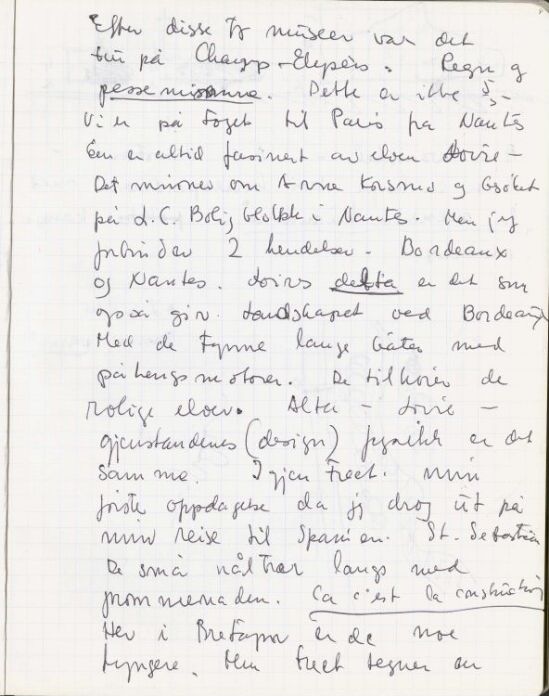 Efter disse to museer var det
tur på Champ-Elysées. Regn og
pessemisme. Dette er ikke
Vi er på toget til Paris fra Nantes
Een er altid facinert av elven Loire -
Det minner om Arne Korsmo og besøket
på L.C. Bolig blokk i Nantes. Men jeg
forbinder 2 hendelser. Bordeaux
og Nantes. Loires delta er det som
også gir landskapet ved Bordeaux
Med de tynne lange båter med
påhengsmotorer. De tilhører de
rolige elver. Alta - Loire -
gjenstandenes (design) fysikk er det
samme. Igjen treet. min
første oppdagelse da jeg drog ut på
min reise til Spanien. St. Sebastian
De små nåltrær langs med
prommenaden. Ca c'est la construction
Her i Bretagne er de noe
tyngere. Men treet tegner en